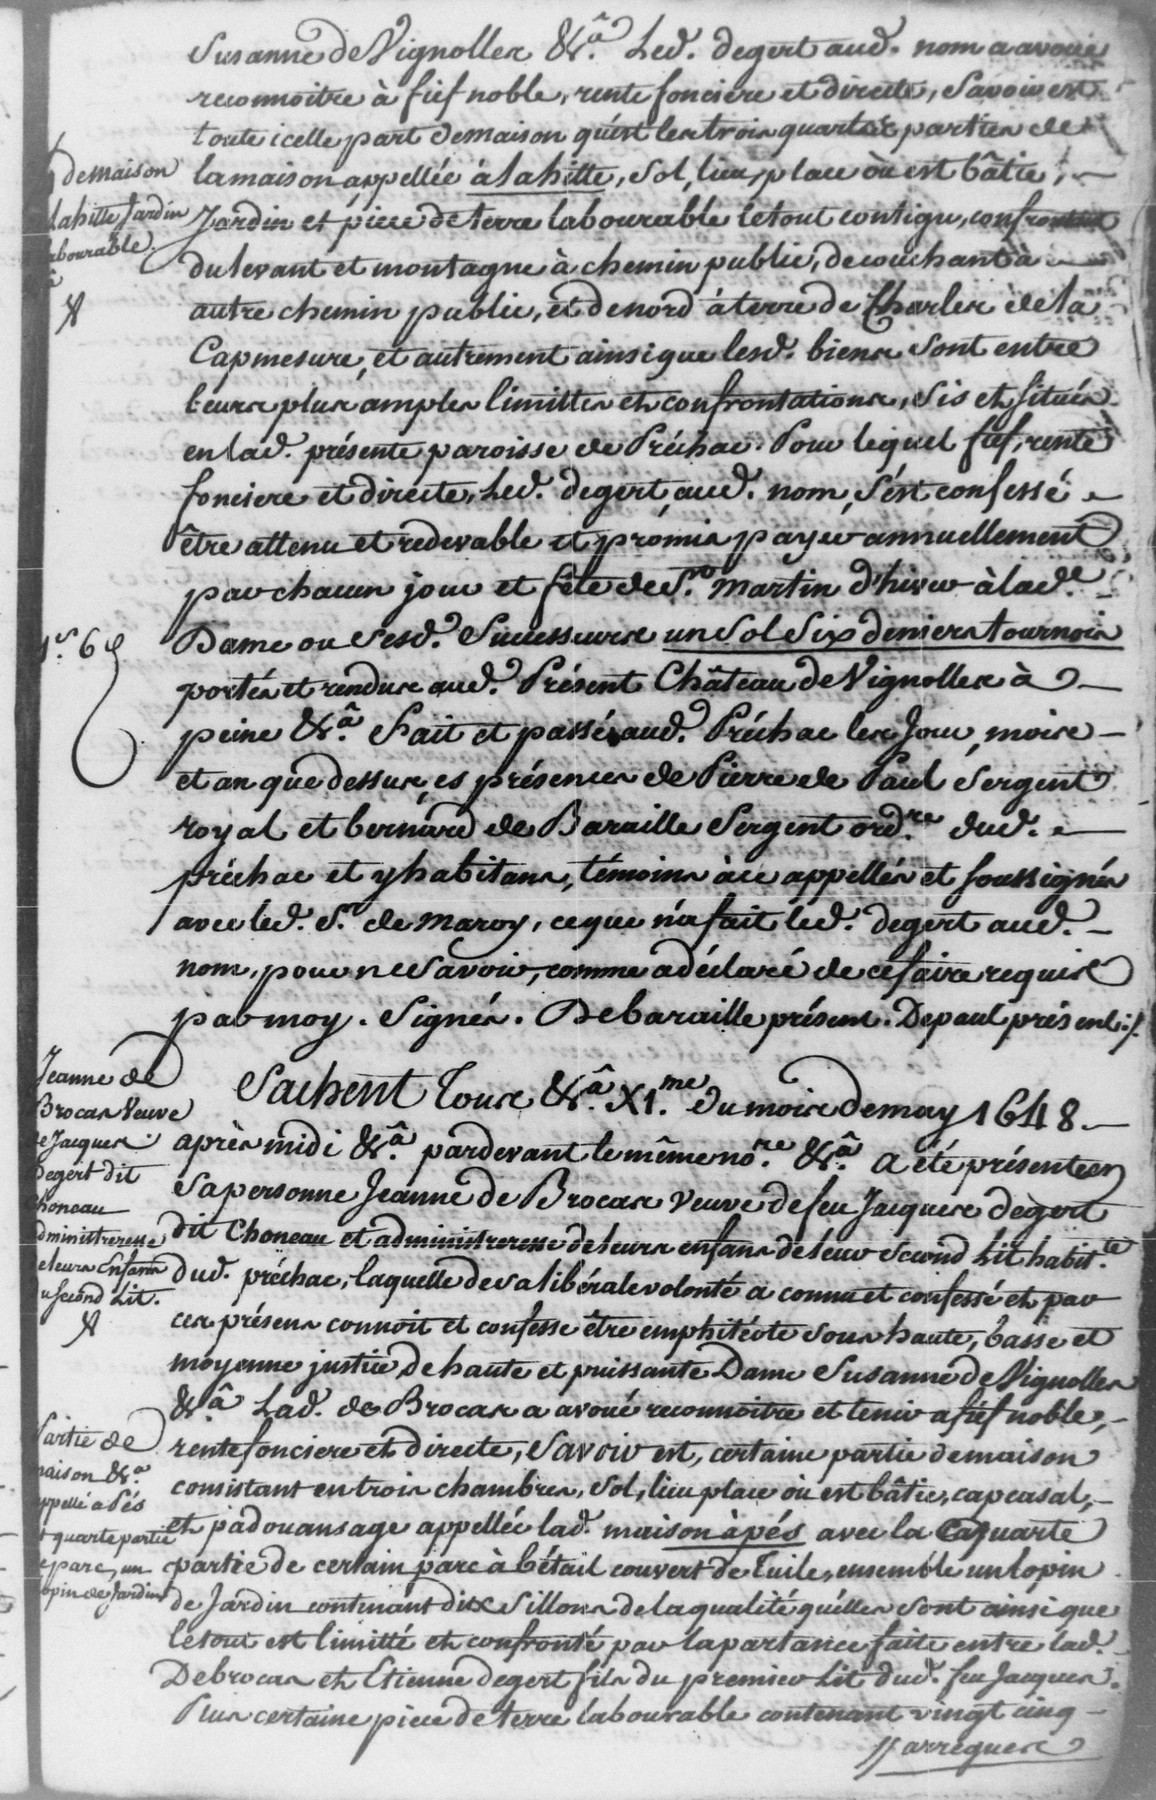 Susanne de Vignolles &ca. Led. degert aud. nom a avoué
reconnoitre à fief noble, rente fonciere et directe, Savoir est
toute icelle part de maison qu'est les trois quartes parties de
la maison appellée à Lahitte, Sol, lieu, place où est bâtie,
Jardin et piece de terre labourable le tout contigu, confrontant
du levant et montagne à chemin public, de couchant à
autre chemin public, et de nord à terre de Charles de la
Capmesure, et autrement ainsi que lesd. biens sont entre
leurs plus amples limittes et confrontations, Sis et situés
en lad. présente paroisse de Préchac. Pour lequel fief, rente
fonciere et directe, Led. degert, aud. nom, s'est confessé
être attenu et redevable et promis payer annuellement
par chacun jour et fête de St. Martin d'hiver à lade.
Dame ou Sesd. Successeurs un Sol Six deniers tournois
portés et rendus aud. Présent Château de Vignolles à
peine &ca. Fait et passé aud. Préchac les Jour, mois
et an que dessus, es présences de Pierre de Paul Sergent
royal et bernard de Baraille Sergent ordre. dud.
préchac et y habitans, témoins à ce appellés et soussignés
avec led. S. de Maroy, ce que n'a fait led. degert aud.
nom, pour ne Savoir, comme a déclaré de ce faire requis
par moy. Signés. Debaraille présent. Depaul présent:/.
de maison
Lahitte Jardin
labourable.
1s. 6d
Sachent Tous &ca. XI.me du mois de may 1648.
après midi &ca. pardevant le même nore. &ca. a été présente en
Sa personne Jeanne de Brocas veuve de feu Jacques degert
dit Choneau et administreresse de leurs enfans de leur second Lit habitte.
dud. préchac, laquelle de sa libérale volonté a connu et confessé et par
ces présens connoit et confesse être emphitéote sous haute, basse et
moyenne justice de haute et puissante Dame Susanne de Vignolles
&ca. Lad. de Brocas a avoué reconnoitre et tenir a fief noble,
rente fonciere et directe, Savoir est, certaine partie de maison
consistant en trois chambres, Sol, lieu place où est bâtie, capcasal,
et padouansage appellée lad. maison à pés avec la quarte
partie de certain parc à bétail couvert de Tuile, ensemble un lopin
de Jardin contenant dix Sillons de la qualité qu'elles sont ainsi que
le tout est limitté et confronté par la partance faite entre lad.
Debrocas et Etienne degert fils du premier Lit dud. feu Jacques.
Plus certaine piece de terre labourable contenant vingt cinq
arregues
Jeanne de
Brocas Veuve
de Jacques
Degert dit
Choneau
administreresse
de leurs Enfans
du second Lit.
Partie de
maison &ca.
appellé à Pés
et quarte partie
de parc, un
lopin de Jardin